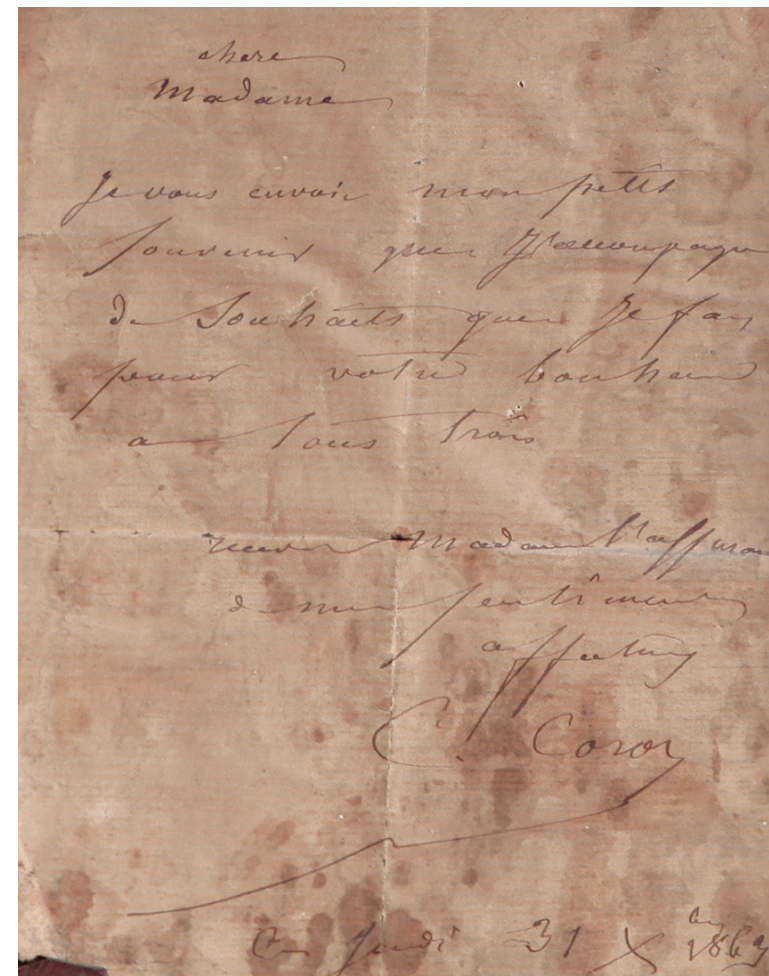 chere
Madame
Je vous envoie mon petit
souvenir que J'accompagne
de Souhaits que Je fais
pour votre bonheur
a tous trois
recevez Madame l'assurance
de mes sentiments
affectueux
C. Corot
Ce Jeudi 31 X bre 1863